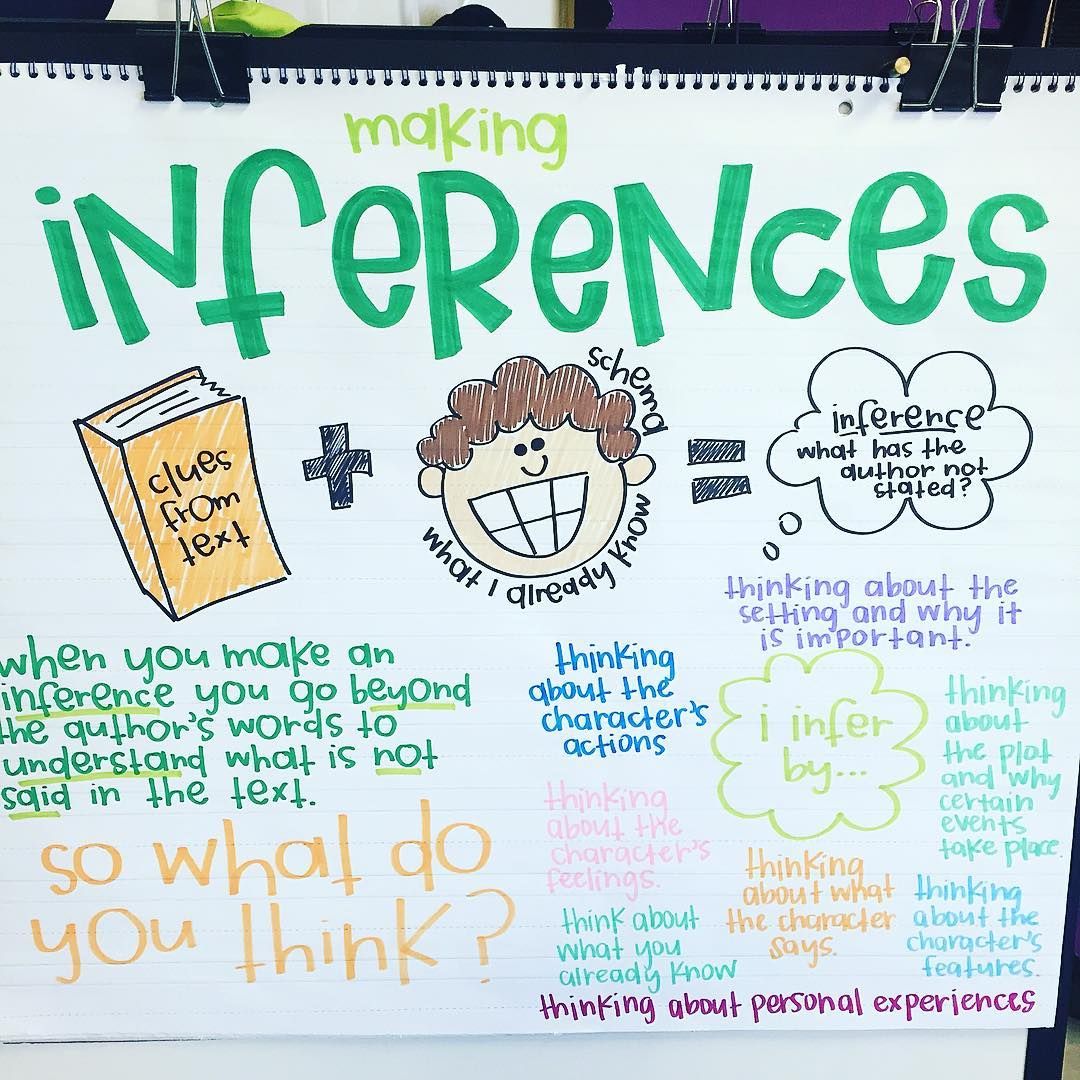 making
iNfeReNces
clues
from
text
+
schema
what i already know
=
inference
what has the
author not
stated?
when you make an
inference you go beyond
the author's words to
understand what is not
said in the text.
so what do
you think?
thinking about the
setting and why it
is important.
thinking
about the
character's
actions
i infer
by...
thinking
about
the plot
and why
certain
events
take place.
thinking
about the
character's
feelings.
thinking
about what
the character
says.
thinking
about the
character's
features.
think about
what you
already know
thinking about personal experiences